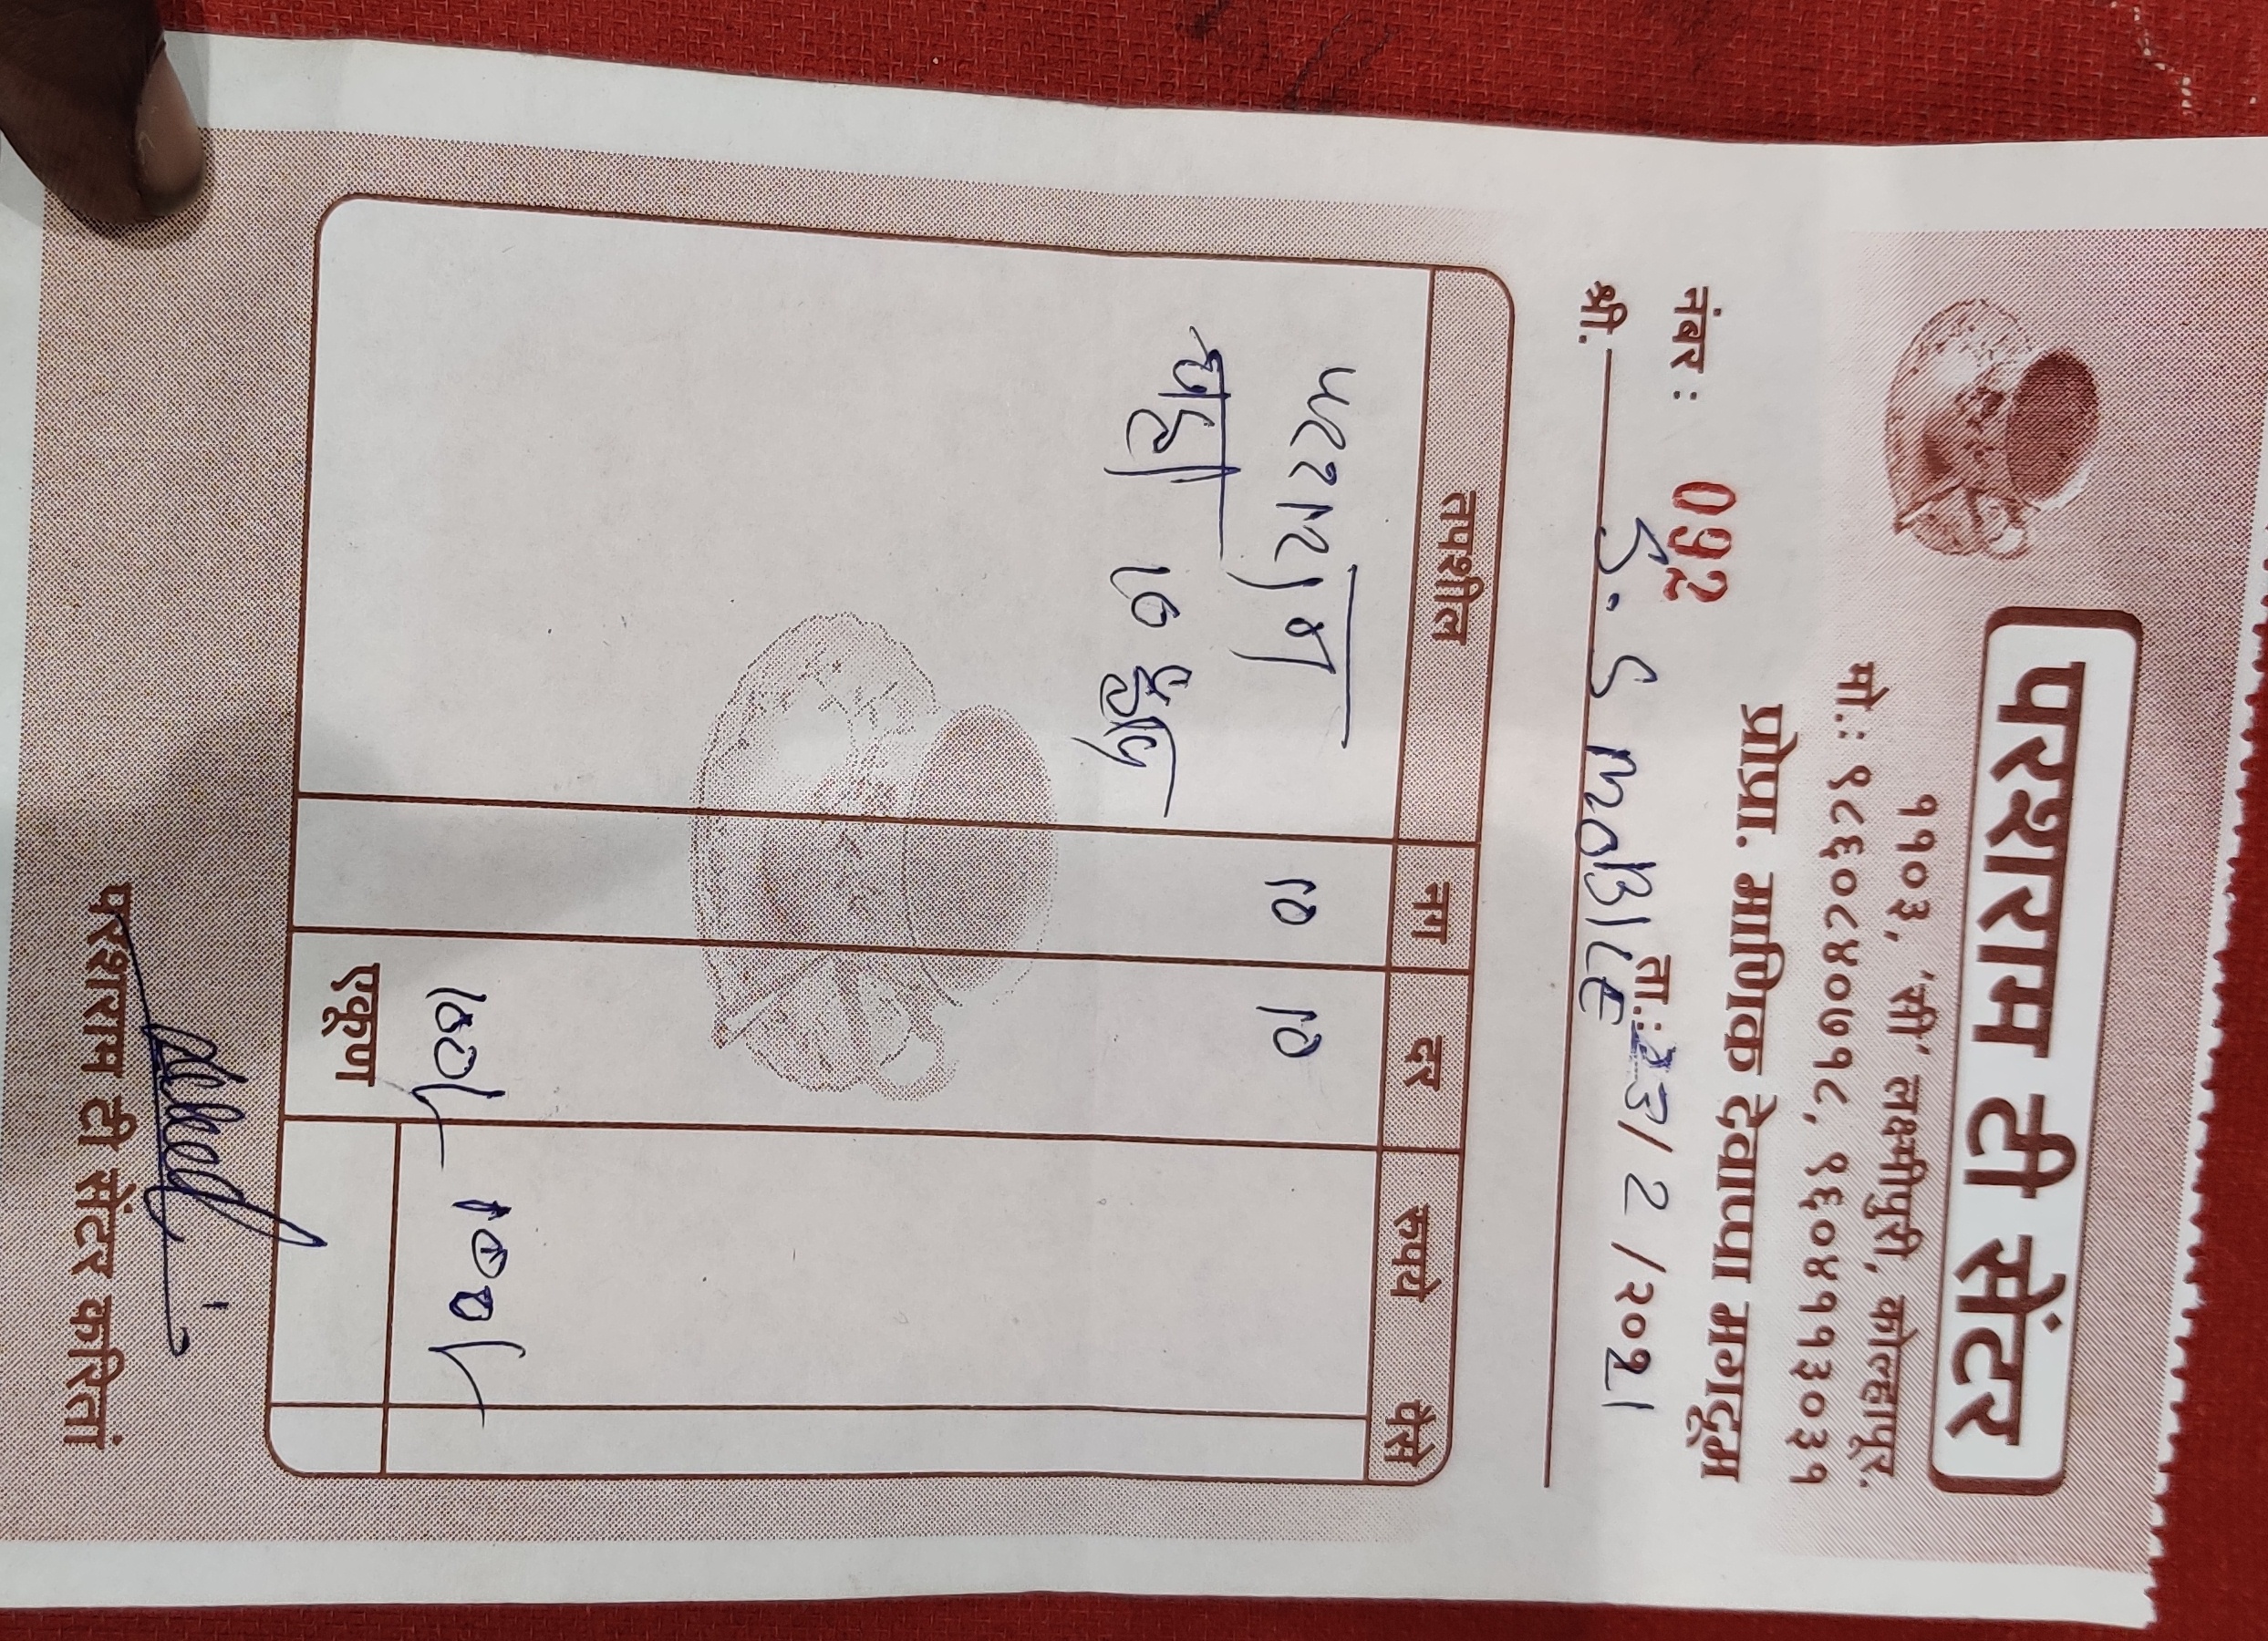 परशराम टी सेंटर
११०३, 'सी' लक्ष्मीपुरी, कोल्हापूर.
मो.: ९८६०८४०७१८, ९६०४११३०३१
प्रोप्रा. माणिक देवाप्पा मगदूम
नंबर : 092 ता.: 23/ 2 /२०21
श्री. S. S MOBILE
तपशील नग दर रुपये पैसे
10 10
चहा 10
100/- 100/-
एकूण
परशराम टी सेंटर करितां